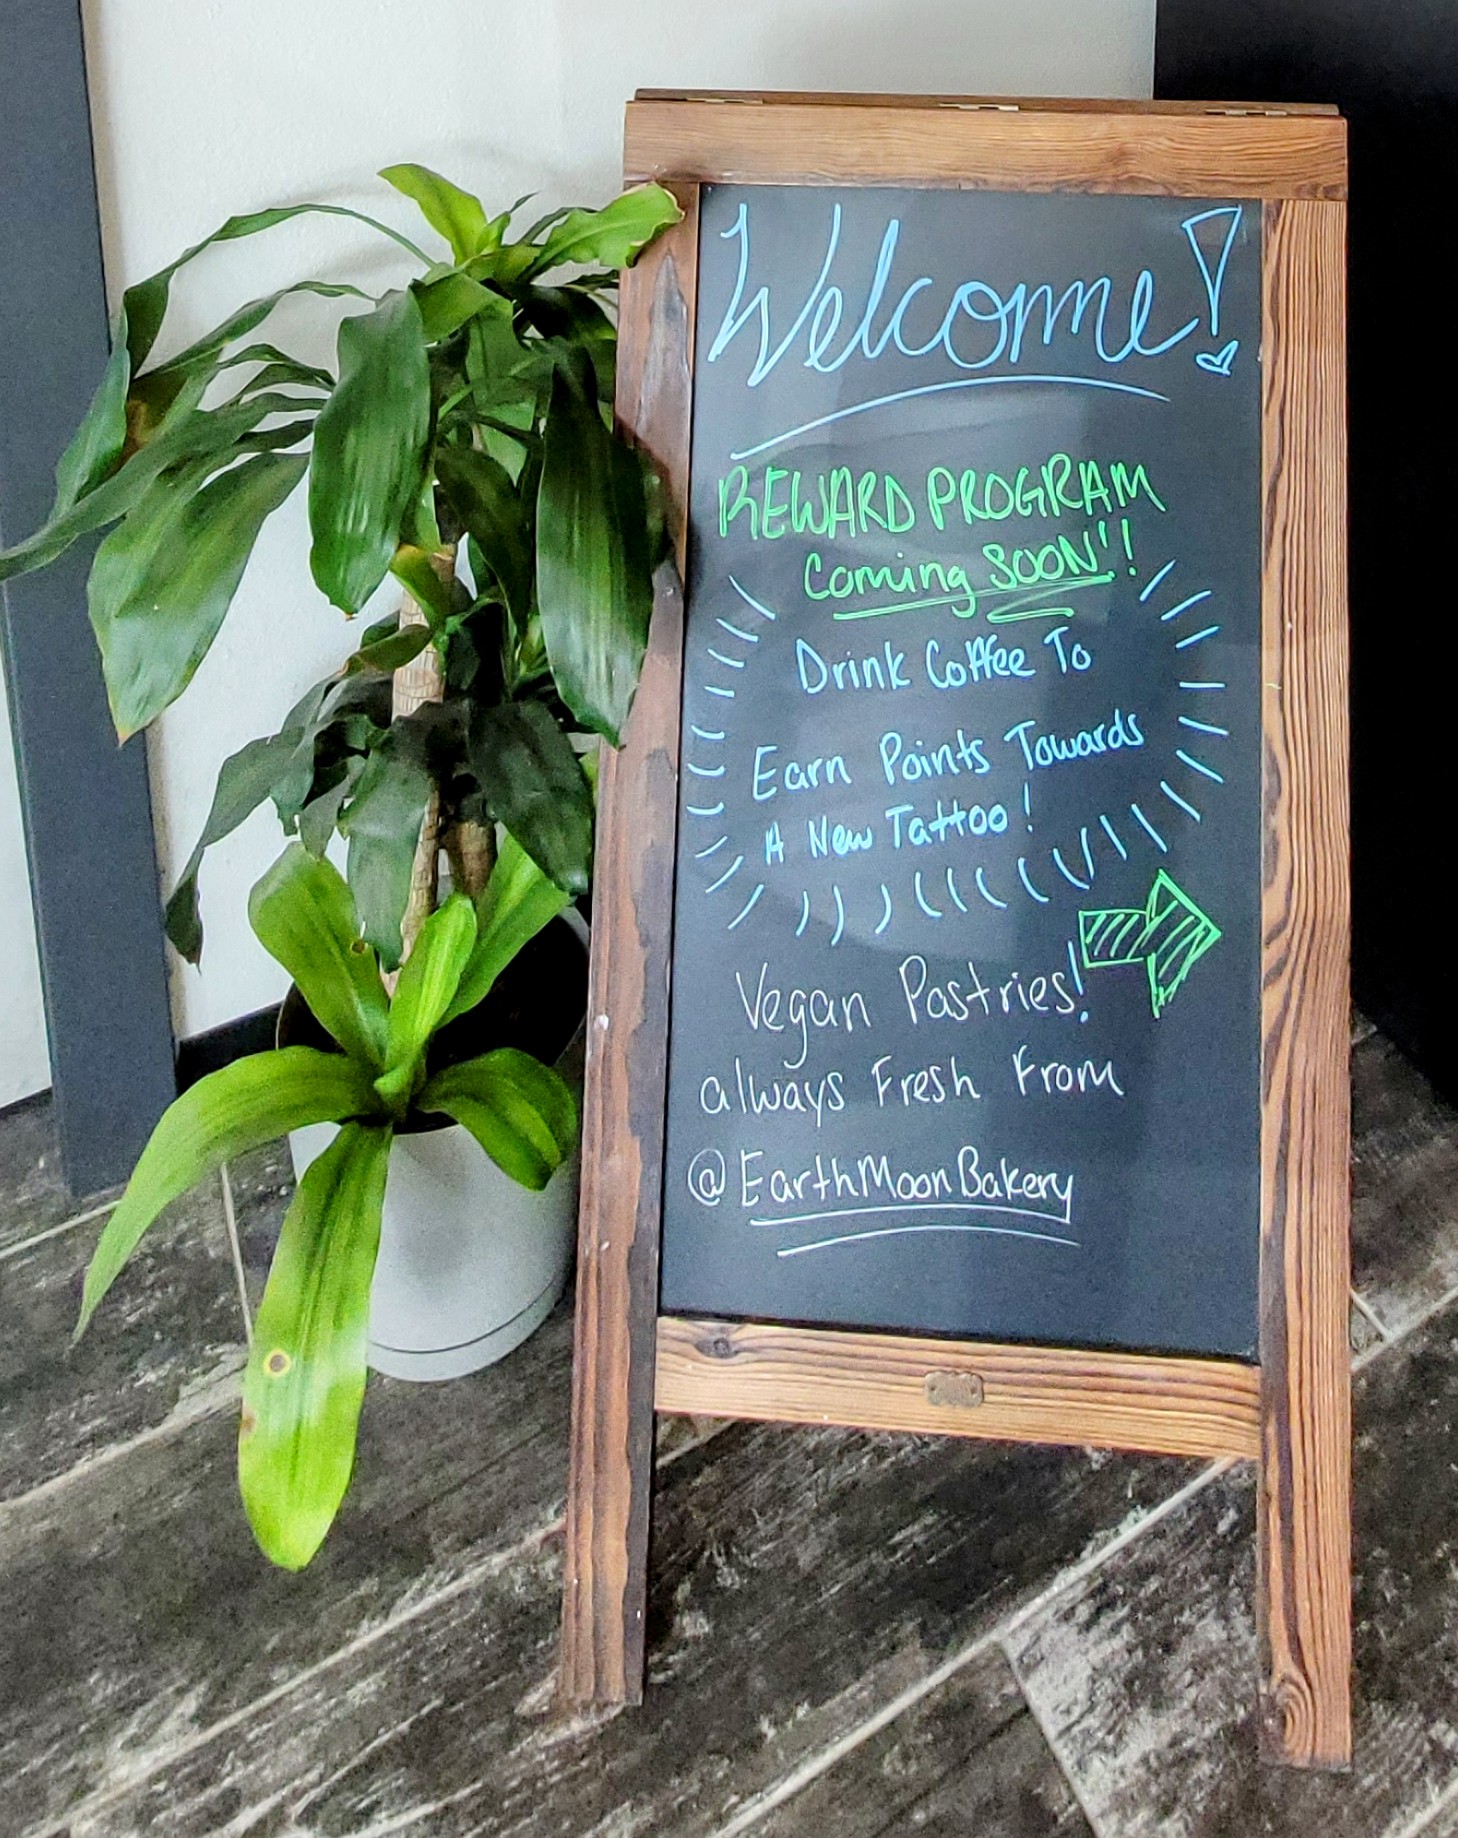 Welcome!
REWARD PROGRAM
Coming SOON!!
Drink Coffee To
Earn Points Towards
A New Tattoo!
Vegan Pastries!
always Fresh From
@EarthMoonBakery